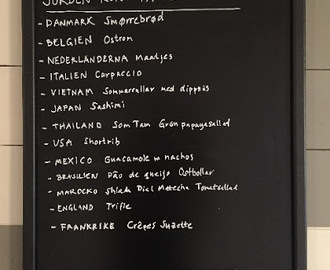 JORDEN RUNT
- DANMARK Smørrebrød
- BELGIEN Ostron
- NEDERLÄNDERNA Maatjes
- ITALIEN Carpaccio
- VIETNAM Sommarrullar med dippsås
- JAPAN Sashimi
- THAILAND Som Tam Grön papayasallad
- USA Shortrib
- MEXICO Guacamole m nachos
- BRASILIEN Pão de queijo Ostbollar
- MAROCKO Shlada Dial Matecha Tomatsallad
- ENGLAND Trifle
- FRANKRIKE Crêpes Suzette